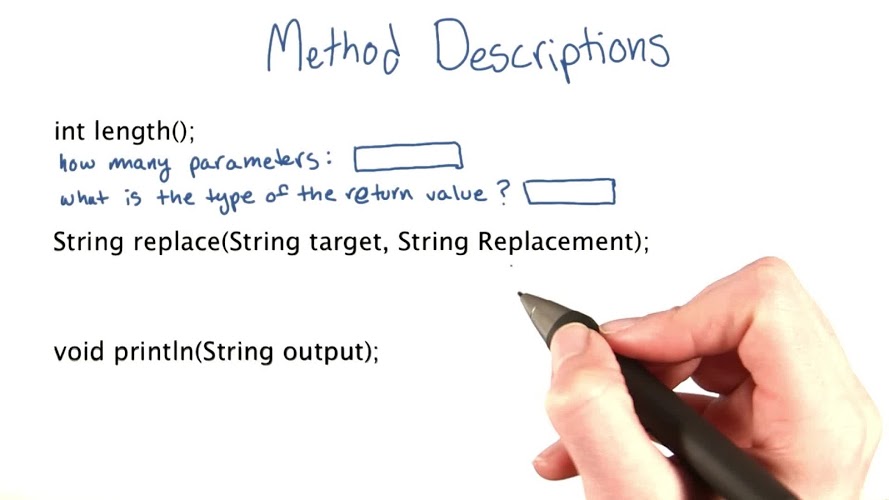 Method Descriptions
int length();
how many parameters:
what is the type of the return value?
String replace(String target, String Replacement);
void println(String output);